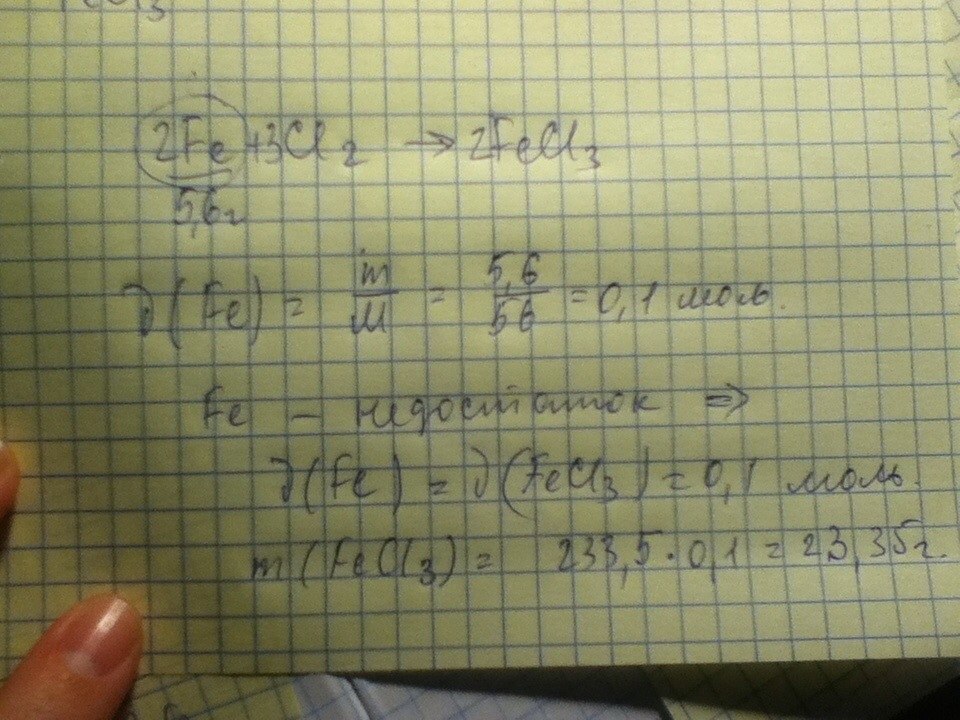 2Fe+3Cl₂ → 2FeCl₃
5,6г
∂(Fe) = m/M = 5,6/56 = 0,1 моль.
Fe – недостаток ⇒
∂(Fe) = ∂(FeCl₃) = 0,1 моль.
m(FeCl₃) = 233,5·0,1 = 23,35г.